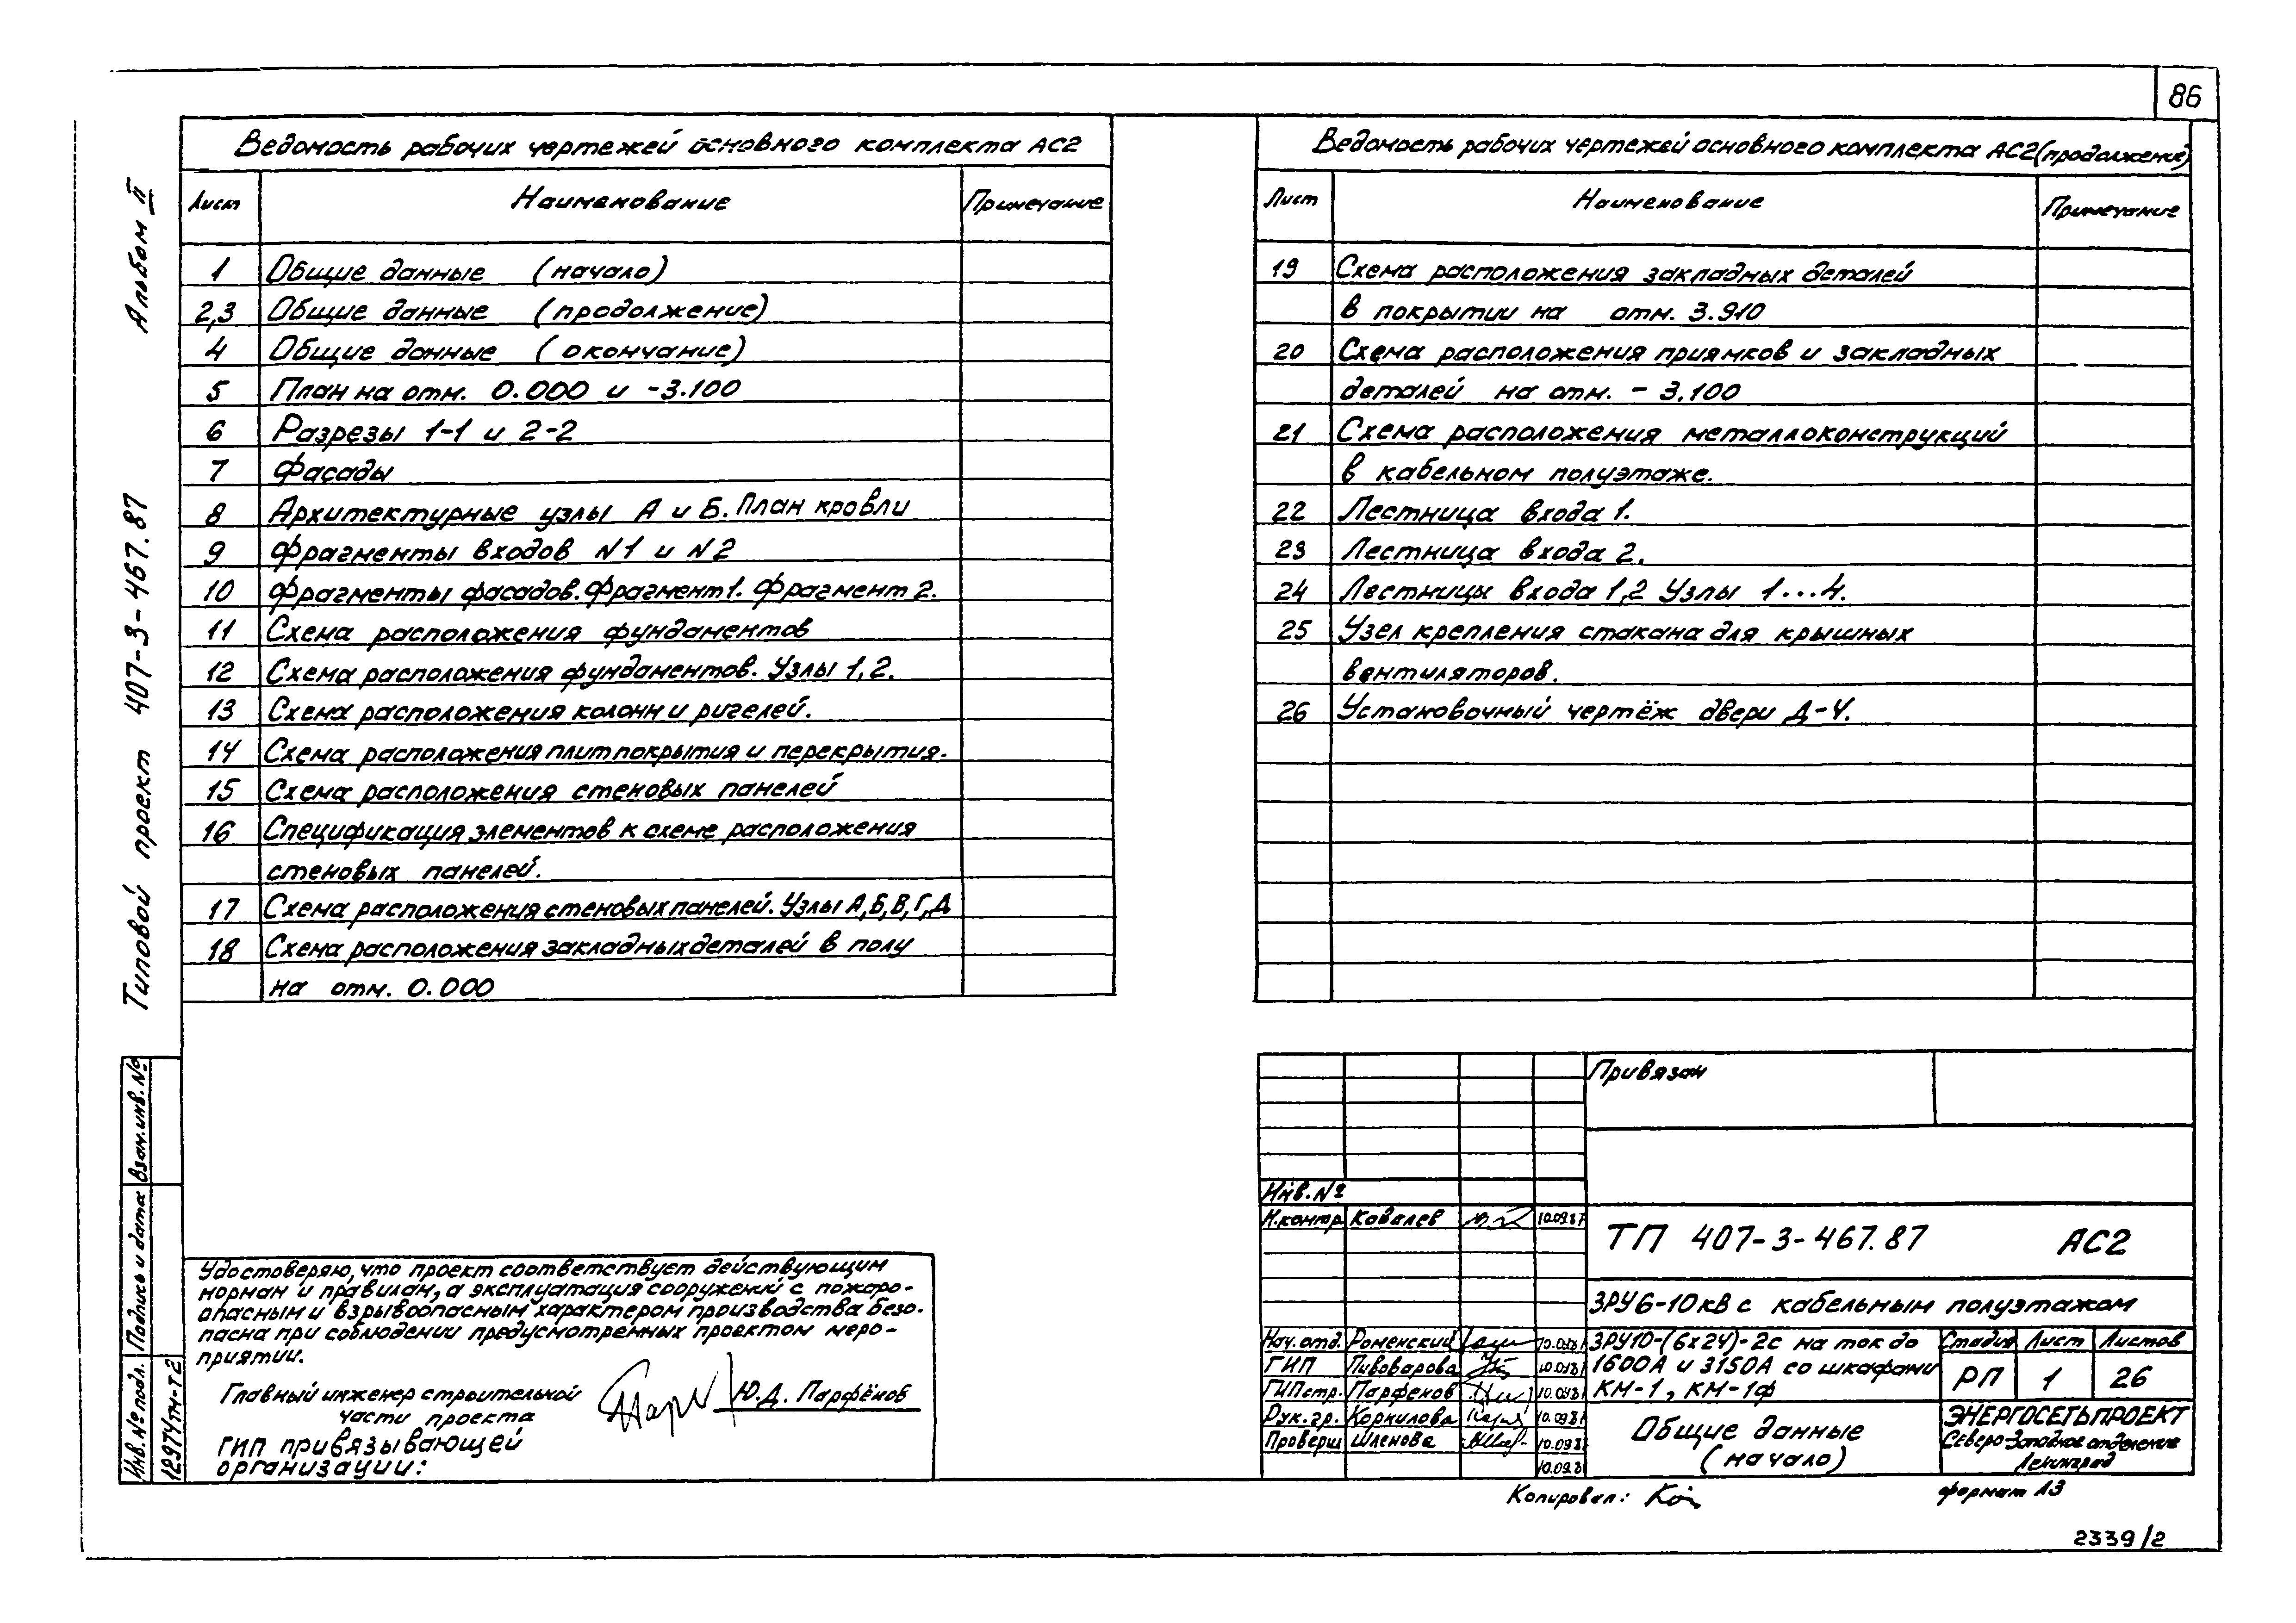 86
Альбом II
Типовой проект 407-3-467.87
Ведомость рабочих чертежей основного комплекта АС2
Лист Наименование Примечание
1 Общие данные (начало)
2,3 Общие данные (продолжение)
4 Общие данные (окончание)
5 План на отм. 0.000 и -3.100
6 Разрезы 1-1 и 2-2
7 Фасады
8 Архитектурные узлы А и Б. План кровли
9 Фрагменты входов N1 и N2
10 Фрагменты фасадов. Фрагмент 1. Фрагмент 2.
11 Схема расположения фундаментов
12 Схема расположения фундаментов. Узлы 1,2.
13 Схема расположения колонн и ригелей.
14 Схема расположения плит покрытия и перекрытия.
15 Схема расположения стеновых панелей
16 Спецификация элементов к схеме расположения
стеновых панелей.
17 Схема расположения стеновых панелей. Узлы А,Б,В,Г,Д
18 Схема расположения закладных деталей в полу
на отм. 0.000
Ведомость рабочих чертежей основного комплекта АС2 (продолжение)
Лист Наименование Примечание
19 Схема расположения закладных деталей
в покрытии на отм. 3.910
20 Схема расположения приямков и закладных
деталей на отм. - 3.100
21 Схема расположения металлоконструкций
в кабельном полуэтаже.
22 Лестница входа 1.
23 Лестница входа 2.
24 Лестницы входа 1,2 Узлы 1...4.
25 Узел крепления стакана для крышных
вентиляторов.
26 Установочный чертёж двери Д-4.
Взам.инв.№
Подпись и дата
Инв.№ подл.
12974тм-т2
Удостоверяю, что проект соответствует действующим
нормам и правилам, а эксплуатация сооружений с пожаро-
опасным и взрывоопасным характером производства безо-
пасна при соблюдении предусмотренных проектом меро-
приятий.
Главный инженер строительной
части проекта Ю.Д. Парфёнов
ГИП привязывающей
организации:
Привязан
Инв.№
Н.контр. Ковалев 10.09.87
ТП 407-3-467.87 АС2
ЗРУ 6-10кВ с кабельным полуэтажом
Нач.отд. Роменский
ГИП Пивоварова
ГИПстр. Парфенов
Рук.гр. Корнилова
Проверил Шленова
10.09.8
ЗРУ10-(6х24)-2с на ток до
1600А и 3150А со шкафами
КМ-1, КМ-1ф
Стадия Лист Листов
РП 1 26
Общие данные
(начало)
ЭНЕРГОСЕТЬПРОЕКТ
Северо-Западное отделение
Ленинград
Копировал:
формат А3
2339/2